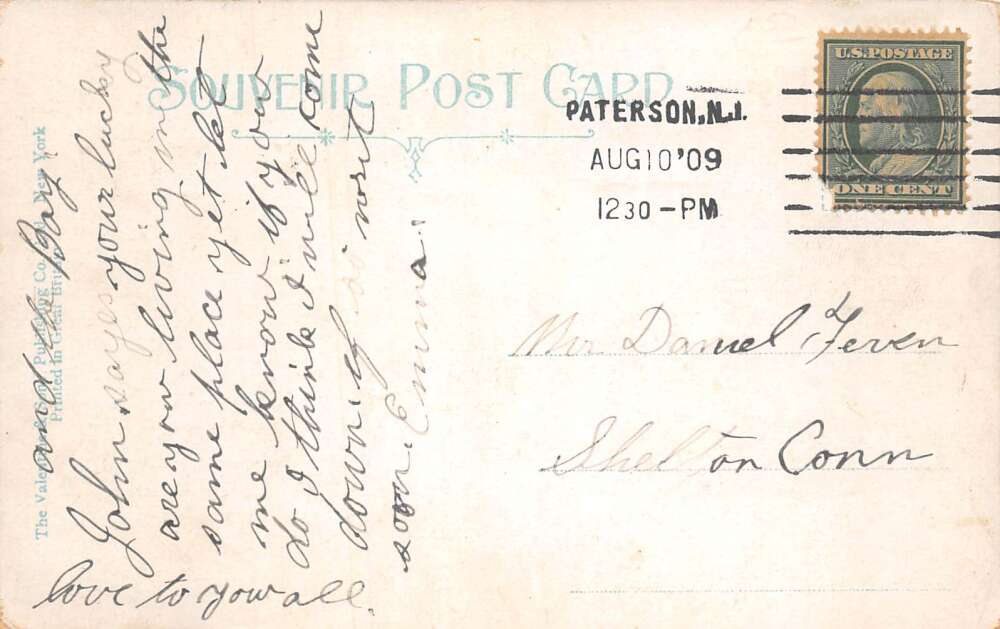 SOUVENIR POST CARD
U.S. POSTAGE
ONE CENT
PATERSON, N.J.
AUG 10 '09
12 30 - PM
Mr Daniel Feven
Shelton Conn
The Valentine & Sons' Publishing Co. Ltd. New York
Printed in Great Britain
and the Baby
John sayes your lucky
are you living in the
same place yet let
me know if you
do I think I will come
down if so write
soon. Emma.
love to you all.